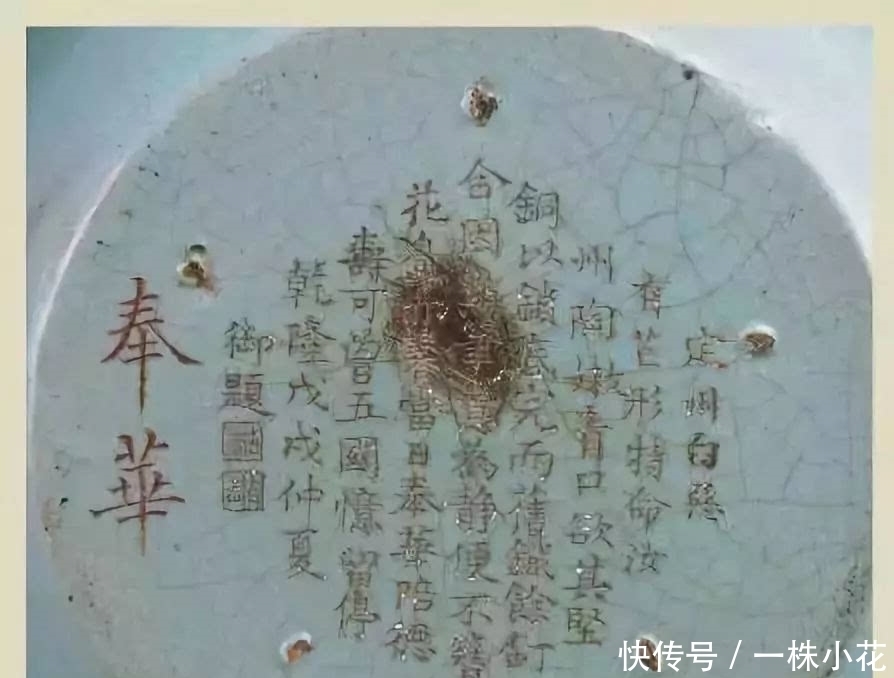 定州白惡
有芒形特命汝
州陶嫩青口欲其堅
銅以鎖底完而舊鐵餘釘
合因為靜便不
花當日奉華陪德
壽可曾五國憶留停
乾隆戊戌仲夏
御題
奉華
快传号 / 一株小花